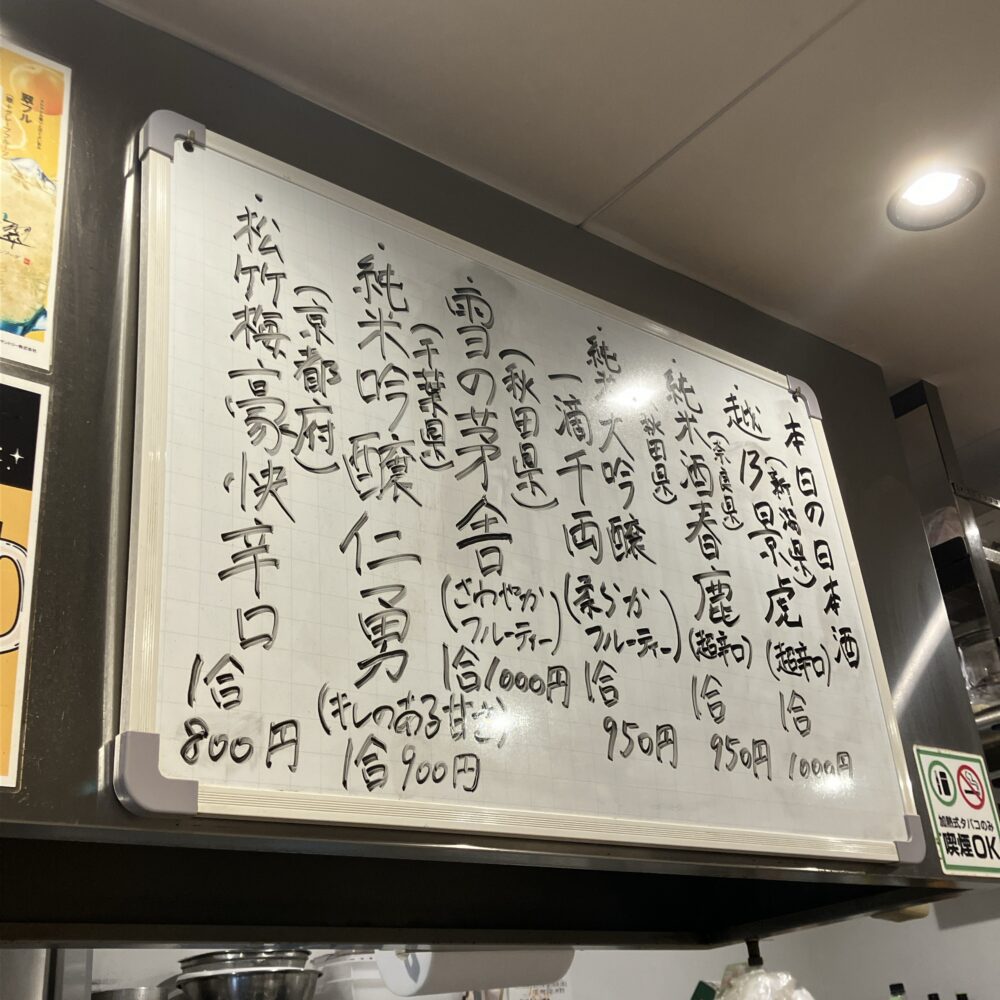 本日の日本酒
越乃景虎
(新潟県)
(超辛口)
1合
1000円
・純米酒春鹿
(奈良県)
(超辛口)
1合
950円
・純米大吟醸
一滴千両
(秋田県)
(柔らか
フルーティー)
1合
950円
・雪の茅舎
(秋田県)
(さわやか
フルーティー)
1合1000円
・純米吟醸 仁勇
(千葉県)
(キレのある甘さ)
1合900円
・松竹梅豪快辛口
(京都府)
1合
800円
加熱式タバコのみ
喫煙OK
翠